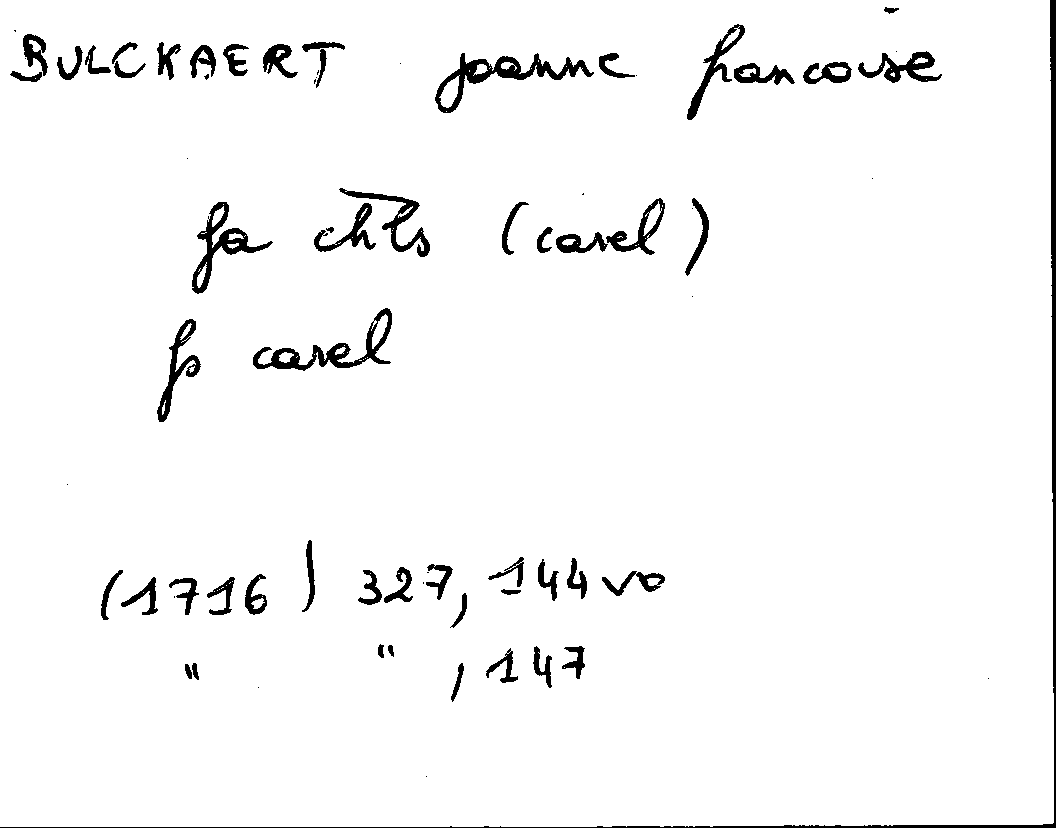 BULCKAERT joanne francoise
fa chls (carel)
fs carel
(1716) 327, 144 vo
" " , 147